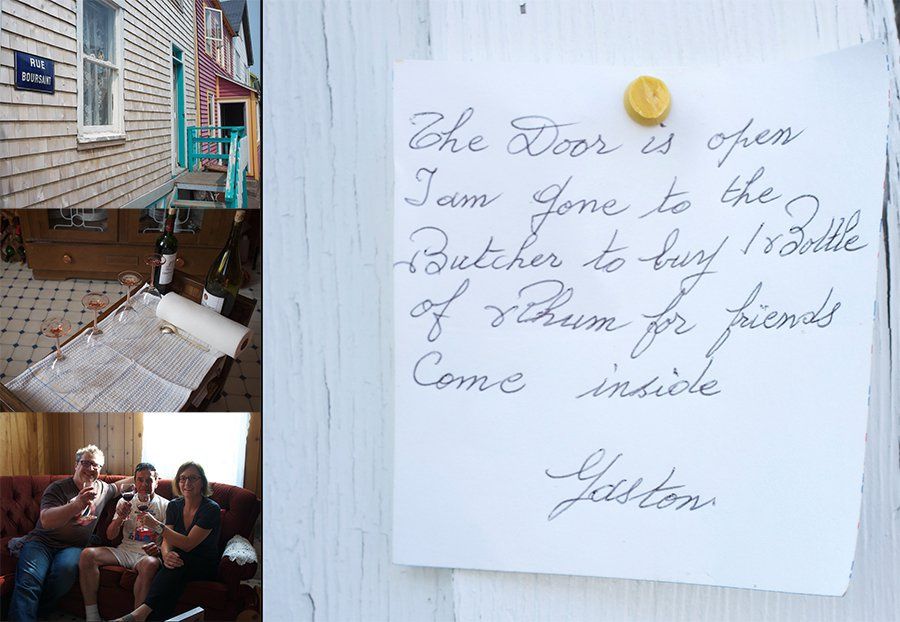 RUE
BOURSAINT
The Door is open
I am gone to the
Butcher to buy 1 Bottle
of Rhum for friends
Come inside
Gaston